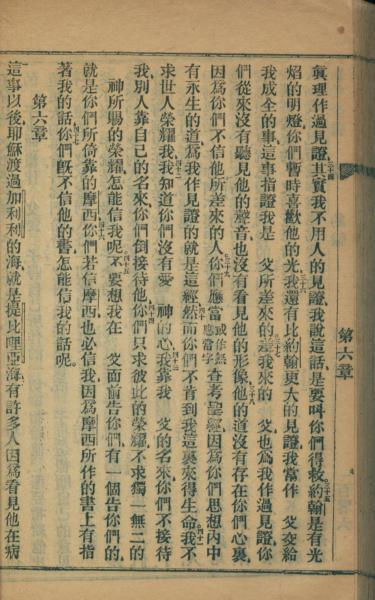 眞理作過見證、三十四其實我不用人的見證、我說這話、是要叫你們得救、三十五約翰是有光
焰的明燈、你們暫時喜歡他的光、三十六我還有比約翰更大的見證、我當作 父交給
我成全的事、這事指證我是 父所差來的、三十七差我來的 父也爲我作過見證、你
們從來沒有聽見他的聲音、也沒有看見他的形像、三十八他的道沒有存在你們心裏、
因爲你們不信他所差來的人、三十九你們應當或作無應當字查考聖經、因爲你們思想內中
有永生的道、爲我作見證的就是這經、四十然而你們不肯到我這裏來得生命、四一我不
求世人榮耀我、四二我知道你們沒有愛 神的心、四三我靠我 父的名來、你們不接待
我、別人靠自己的名來、你們倒接待他、四四你們只求彼此的榮耀、不求獨一無二的
神所賜的榮耀、怎能信我呢、四五不要想我在 父面前告你們、有一個告你們的、
就是你們所倚靠的摩西、四六你們若信摩西、也必信我、因爲摩西所作的書上有指
著我的話、四七你們旣不信他的書、怎能信我的話呢。
第六章
這事以後、耶穌渡過加利利的海、就是提比哩亞海、有許多人因爲看見他在病
第六章